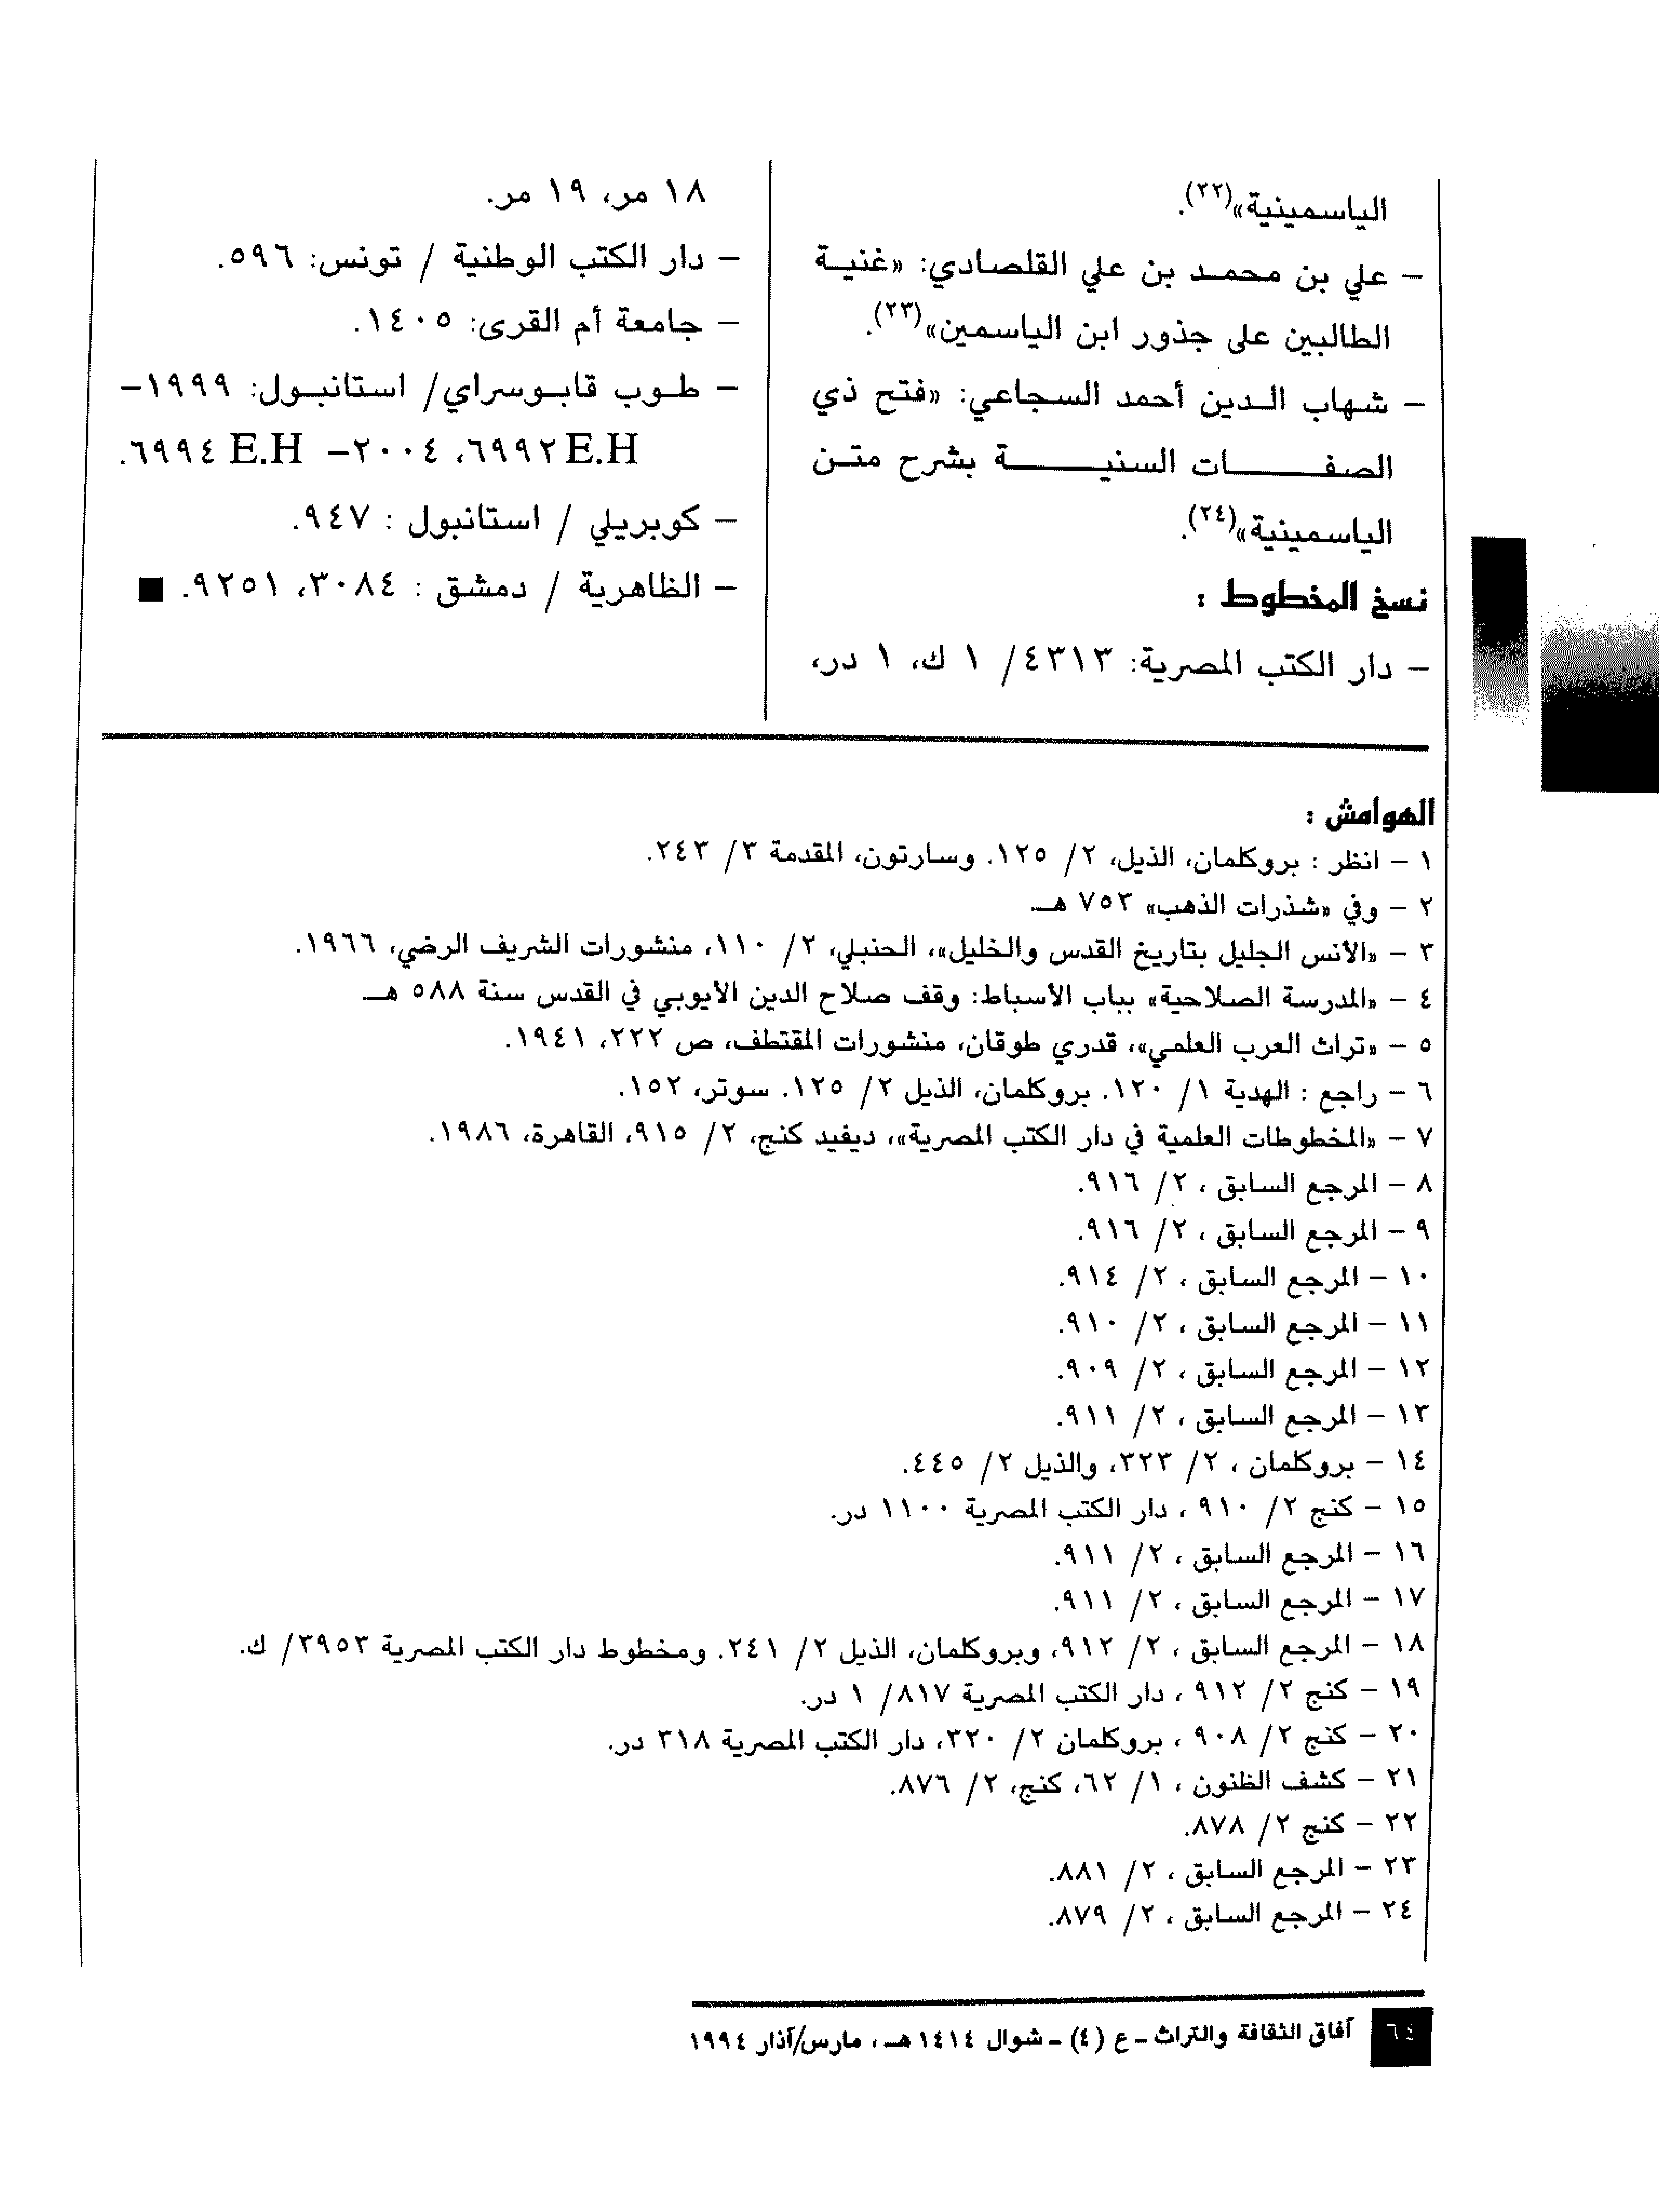 الياسمينية»(٢٢).
– علي بن محمد بن علي القلصادي: «غنية
الطالبين على جذور ابن الياسمين»(٢٣).
– شهاب الدين أحمد السجاعي: «فتح ذي
الصفات السنية بشرح متن
الياسمينية»(٢٤).
نسخ المخطوط :
– دار الكتب المصرية: ٤٣١٣/ ١ ك، ١ در،
١٨ مر، ١٩ مر.
– دار الكتب الوطنية / تونس: ٥٩٦.
– جامعة أم القرى: ١٤٠٥.
– طوب قابوسراي/ استانبول: ١٩٩٩–
E.H ٦٩٩٢، ٢٠٠٤– E.H ٦٩٩٤.
– كوبريلي / استانبول : ٩٤٧.
– الظاهرية / دمشق : ٣٠٨٤، ٩٢٥١. ■
الهوامش :
١ – انظر : بروكلمان، الذيل، ٢/ ١٢٥. وسارتون، المقدمة ٣/ ٢٤٣.
٢ – وفي «شذرات الذهب» ٧٥٣ هـ.
٣ – «الأنس الجليل بتاريخ القدس والخليل»، الحنبلي، ٢/ ١١٠، منشورات الشريف الرضي، ١٩٦٦.
٤ – «المدرسة الصلاحية» بباب الأسباط: وقف صلاح الدين الأيوبي في القدس سنة ٥٨٨ هـ.
٥ – «تراث العرب العلمي»، قدري طوقان، منشورات المقتطف، ص ٢٢٢، ١٩٤١.
٦ – راجع : الهدية ١/ ١٢٠. بروكلمان، الذيل ٢/ ١٢٥. سوتر، ١٥٢.
٧ – «المخطوطات العلمية في دار الكتب المصرية»، ديفيد كنج، ٢/ ٩١٥، القاهرة، ١٩٨٦.
٨ – المرجع السابق ، ٢/ ٩١٦.
٩ – المرجع السابق ، ٢/ ٩١٦.
١٠ – المرجع السابق ، ٢/ ٩١٤.
١١ – المرجع السابق ، ٢/ ٩١٠.
١٢ – المرجع السابق ، ٢/ ٩٠٩.
١٣ – المرجع السابق ، ٢/ ٩١١.
١٤ – بروكلمان ، ٢/ ٣٢٣، والذيل ٢/ ٤٤٥.
١٥ – كنج ٢/ ٩١٠ ، دار الكتب المصرية ١١٠٠ در.
١٦ – المرجع السابق ، ٢/ ٩١١.
١٧ – المرجع السابق ، ٢/ ٩١١.
١٨ – المرجع السابق ، ٢/ ٩١٢، وبروكلمان، الذيل ٢/ ٢٤١. ومخطوط دار الكتب المصرية ٣٩٥٣/ ك.
١٩ – كنج ٢/ ٩١٢ ، دار الكتب المصرية ٨١٧/ ١ در.
٢٠ – كنج ٢/ ٩٠٨ ، بروكلمان ٢/ ٣٢٠، دار الكتب المصرية ٣١٨ در.
٢١ – كشف الظنون ، ١/ ٦٢، كنج، ٢/ ٨٧٦.
٢٢ – كنج ٢/ ٨٧٨.
٢٣ – المرجع السابق ، ٢/ ٨٨١.
٢٤ – المرجع السابق ، ٢/ ٨٧٩.
٦٤ آفاق الثقافة والتراث – ع (٤) – شوال ١٤١٤ هـ ، مارس/آذار ١٩٩٤